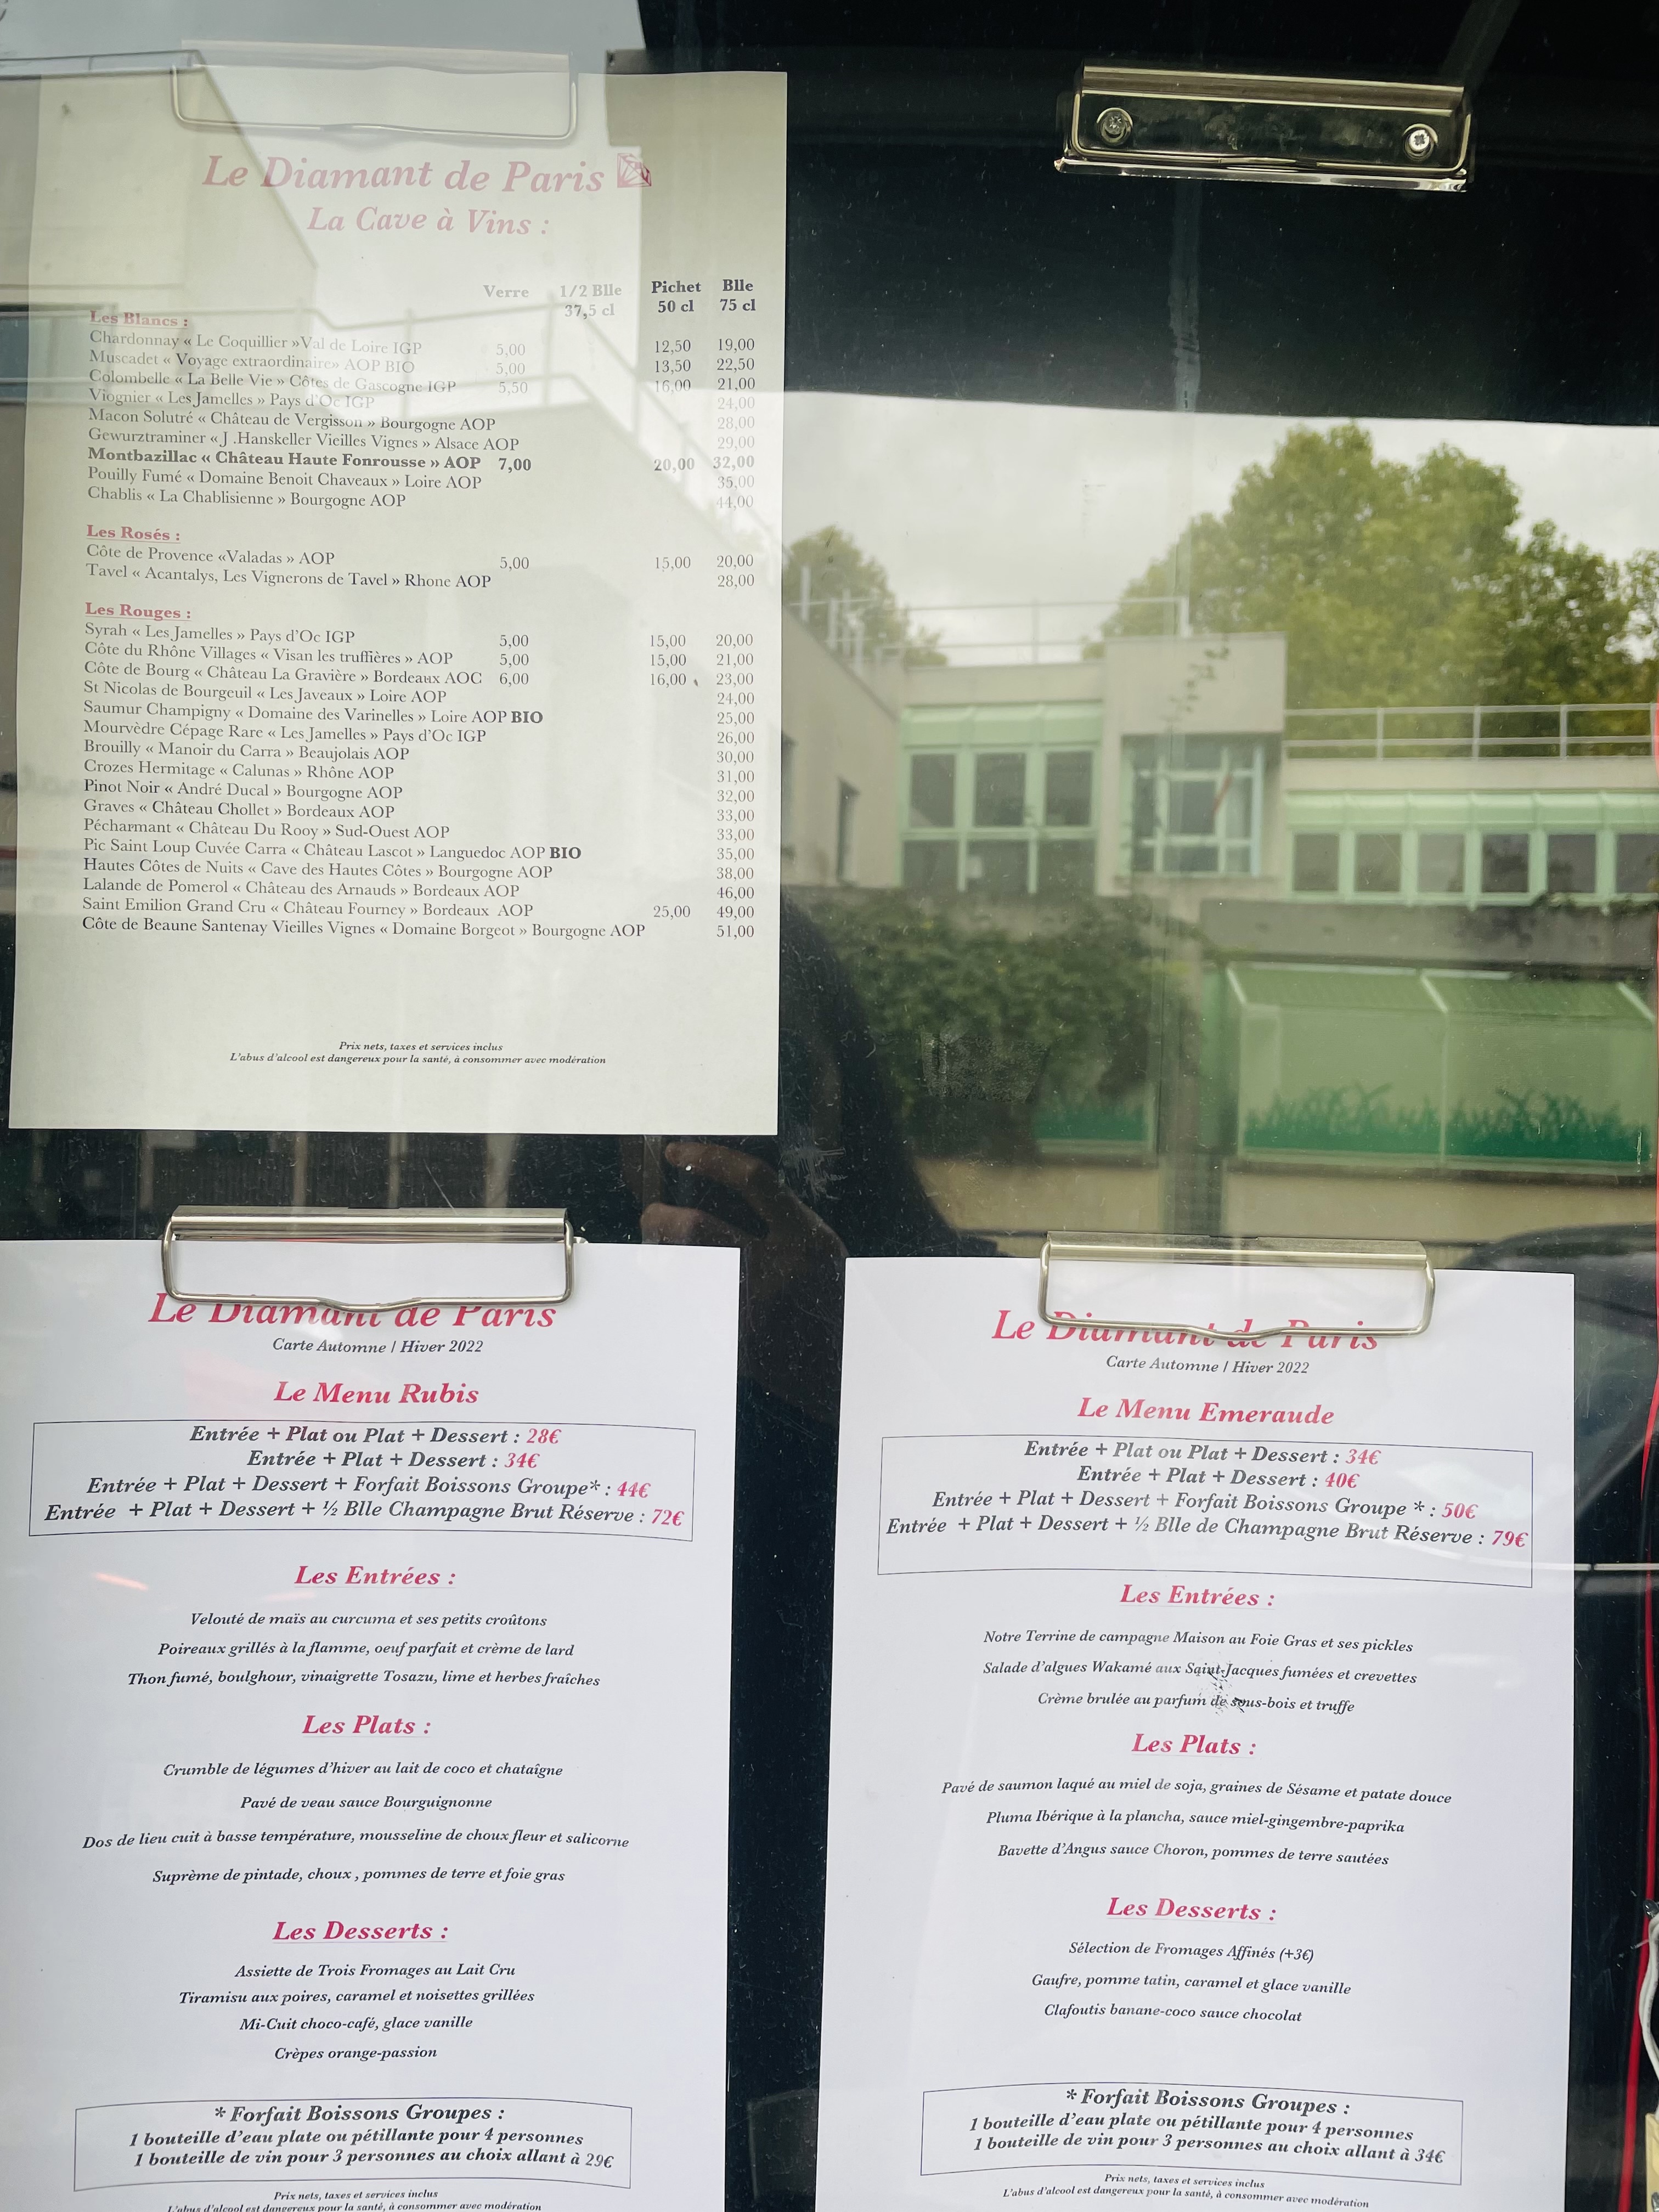 Le Diamant de Paris
La Cave à Vins :
Verre 1/2 Blle Pichet Blle
37,5 cl 50 cl 75 cl
Les Blancs :
Chardonnay « Le Coquillier »Val de Loire IGP 5,00 12,50 19,00
Muscadet « Voyage extraordinaire» AOP BIO 5,00 13,50 22,50
Colombelle « La Belle Vie » Côtes de Gascogne IGP 5,50 16,00 21,00
Viognier « Les Jamelles » Pays d'Oc IGP 24,00
Macon Solutré « Château de Vergisson » Bourgogne AOP 28,00
Gewurztraminer « J .Hanskeller Vieilles Vignes » Alsace AOP 29,00
Montbazillac « Château Haute Fonrousse » AOP 7,00 20,00 32,00
Pouilly Fumé « Domaine Benoit Chaveaux » Loire AOP 35,00
Chablis « La Chablisienne » Bourgogne AOP 44,00
Les Rosés :
Côte de Provence «Valadas » AOP 5,00 15,00 20,00
Tavel « Acantalys, Les Vignerons de Tavel » Rhone AOP 28,00
Les Rouges :
Syrah « Les Jamelles » Pays d'Oc IGP 5,00 15,00 20,00
Côte du Rhône Villages « Visan les truffières » AOP 5,00 15,00 21,00
Côte de Bourg « Château La Gravière » Bordeaux AOC 6,00 16,00 23,00
St Nicolas de Bourgeuil « Les Javeaux » Loire AOP 24,00
Saumur Champigny « Domaine des Varinelles » Loire AOP BIO 25,00
Mourvèdre Cépage Rare « Les Jamelles » Pays d'Oc IGP 26,00
Brouilly « Manoir du Carra » Beaujolais AOP 30,00
Crozes Hermitage « Calunas » Rhône AOP 31,00
Pinot Noir « André Ducal » Bourgogne AOP 32,00
Graves « Château Chollet » Bordeaux AOP 33,00
Pécharmant « Château Du Rooy » Sud-Ouest AOP 33,00
Pic Saint Loup Cuvée Carra « Château Lascot » Languedoc AOP BIO 35,00
Hautes Côtes de Nuits « Cave des Hautes Côtes » Bourgogne AOP 38,00
Lalande de Pomerol « Château des Arnauds » Bordeaux AOP 46,00
Saint Emilion Grand Cru « Château Fourney » Bordeaux AOP 25,00 49,00
Côte de Beaune Santenay Vieilles Vignes « Domaine Borgeot » Bourgogne AOP 51,00
Prix nets, taxes et services inclus
L'abus d'alcool est dangereux pour la santé, à consommer avec modération
Le Diamant de Paris
Carte Automne / Hiver 2022
Le Menu Rubis
Entrée + Plat ou Plat + Dessert : 28€
Entrée + Plat + Dessert : 34€
Entrée + Plat + Dessert + Forfait Boissons Groupe* : 44€
Entrée + Plat + Dessert + ½ Blle Champagne Brut Réserve : 72€
Les Entrées :
Velouté de maïs au curcuma et ses petits croûtons
Poireaux grillés à la flamme, oeuf parfait et crème de lard
Thon fumé, boulghour, vinaigrette Tosazu, lime et herbes fraîches
Les Plats :
Crumble de légumes d'hiver au lait de coco et chataîgne
Pavé de veau sauce Bourguignonne
Dos de lieu cuit à basse température, mousseline de choux fleur et salicorne
Suprème de pintade, choux , pommes de terre et foie gras
Les Desserts :
Assiette de Trois Fromages au Lait Cru
Tiramisu aux poires, caramel et noisettes grillées
Mi-Cuit choco-café, glace vanille
Crèpes orange-passion
* Forfait Boissons Groupes :
1 bouteille d'eau plate ou pétillante pour 4 personnes
1 bouteille de vin pour 3 personnes au choix allant à 29€
Prix nets, taxes et services inclus
L'abus d'alcool est dangereux pour la santé, à consommer avec modération
Le Diamant de Paris
Carte Automne / Hiver 2022
Le Menu Emeraude
Entrée + Plat ou Plat + Dessert : 34€
Entrée + Plat + Dessert : 40€
Entrée + Plat + Dessert + Forfait Boissons Groupe * : 50€
Entrée + Plat + Dessert + ½ Blle de Champagne Brut Réserve : 79€
Les Entrées :
Notre Terrine de campagne Maison au Foie Gras et ses pickles
Salade d'algues Wakamé aux Saint-Jacques fumées et crevettes
Crème brulée au parfum de sous-bois et truffe
Les Plats :
Pavé de saumon laqué au miel de soja, graines de Sésame et patate douce
Pluma Ibérique à la plancha, sauce miel-gingembre-paprika
Bavette d'Angus sauce Choron, pommes de terre sautées
Les Desserts :
Sélection de Fromages Affinés (+3€)
Gaufre, pomme tatin, caramel et glace vanille
Clafoutis banane-coco sauce chocolat
* Forfait Boissons Groupes :
1 bouteille d'eau plate ou pétillante pour 4 personnes
1 bouteille de vin pour 3 personnes au choix allant à 34€
Prix nets, taxes et services inclus
L'abus d'alcool est dangereux pour la santé, à consommer avec modération